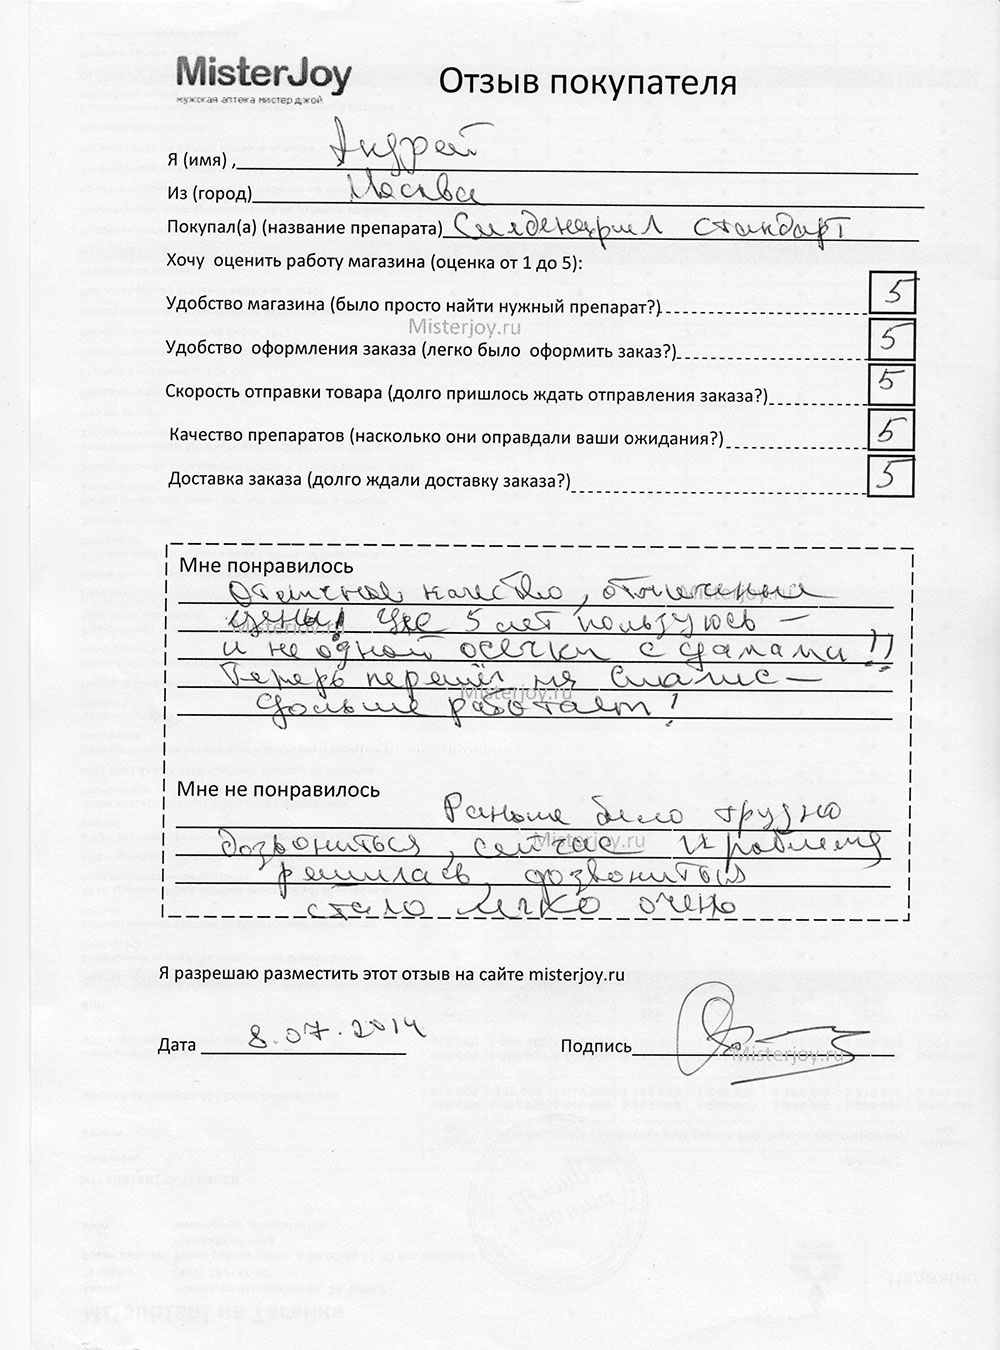 MisterJoy
мужская аптека мистер джой
Отзыв покупателя
Я (имя) , Андрей
Из (город) Москва
Покупал(а) (название препарата) Силденафил стандарт
Хочу оценить работу магазина (оценка от 1 до 5):
Удобство магазина (было просто найти нужный препарат?) 5
Misterjoy.ru
Удобство оформления заказа (легко было оформить заказ?) 5
Скорость отправки товара (долго пришлось ждать отправления заказа?) 5
Качество препаратов (насколько они оправдали ваши ожидания?) 5
Доставка заказа (долго ждали доставку заказа?) 5
Мне понравилось
Отличное качество, отличные
Misterjoy.ru
цены! Уже 5 лет пользуюсь –
Misterjoy.ru
и не одной осечки с дамами!!
Теперь перешёл на Сиалис –
Misterjoy.ru
дольше работает!
Мне не понравилось
Раньше было трудно
дозвониться, сейчас проблема
Misterjoy.ru
решилась, дозвониться
стало легко очень
Я разрешаю разместить этот отзыв на сайте misterjoy.ru
Дата 8.07.2014 Подпись
Misterjoy.ru